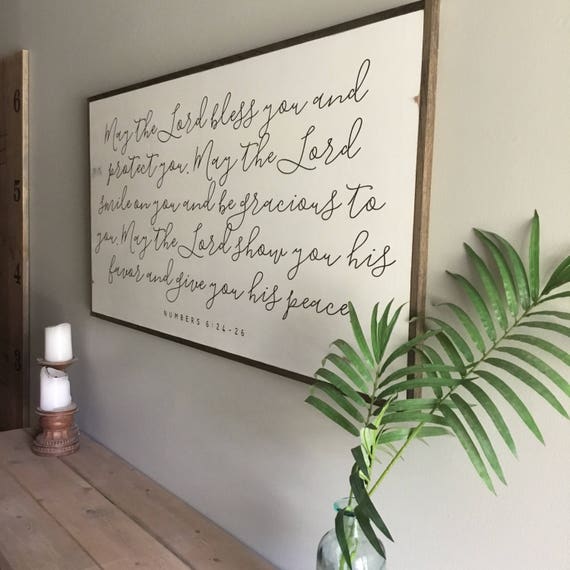 May the Lord bless you and
protect you. May the Lord
smile on you and be gracious to
you. May the Lord show you his
favor and give you his peace
NUMBERS 6:24-26
6
5
4
3